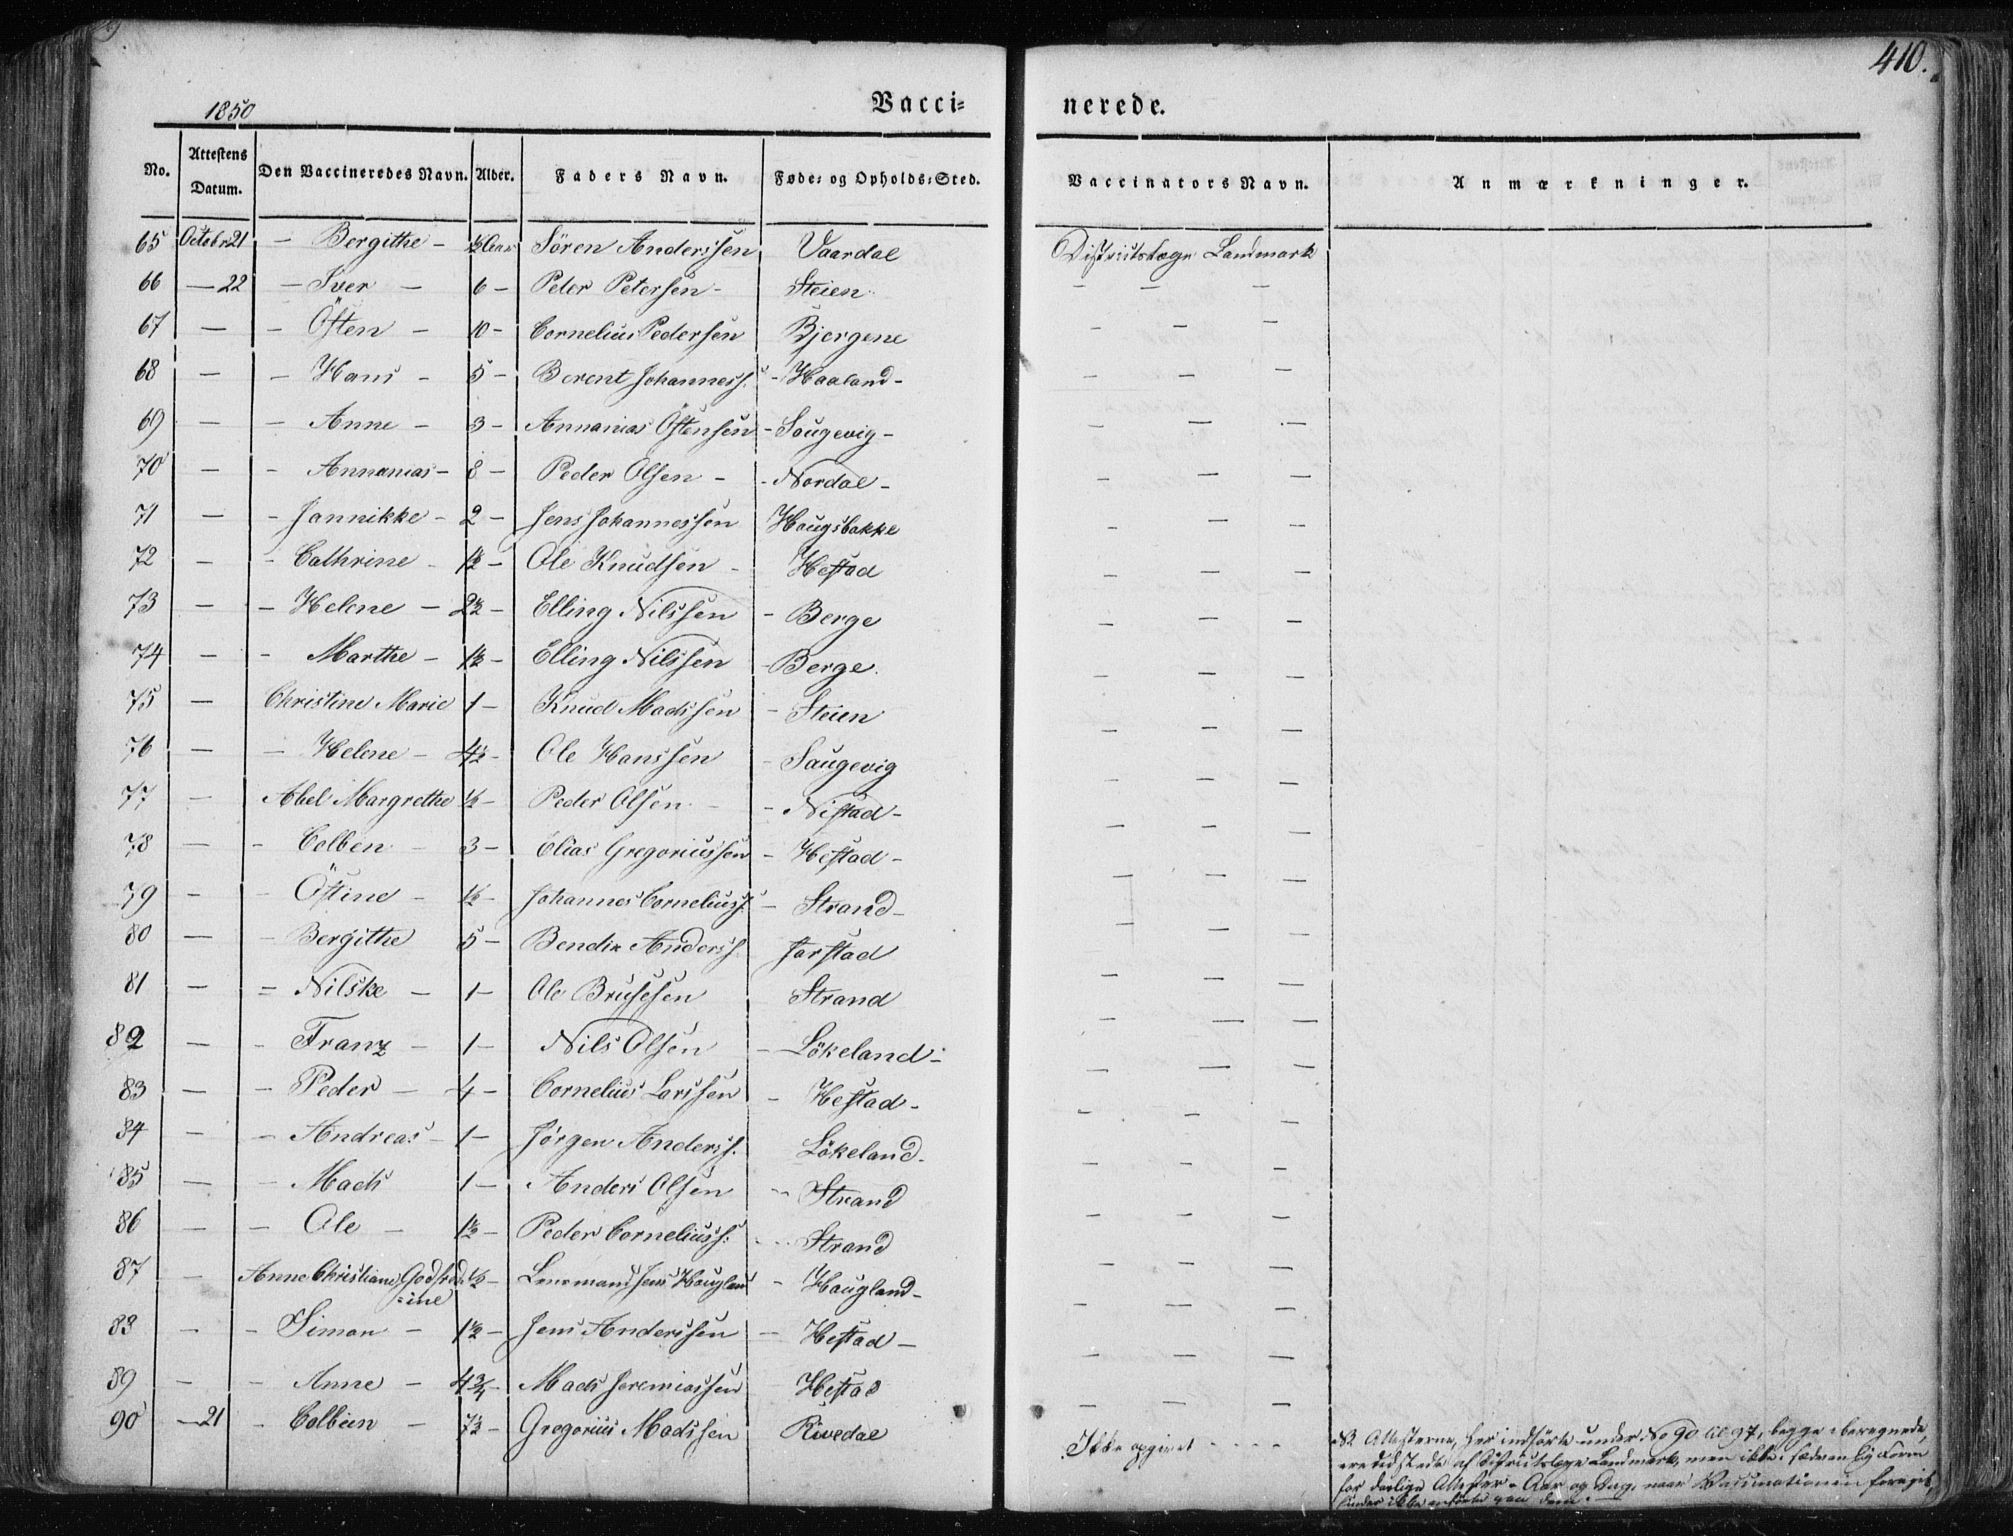 410.
1850
Vacci= nerede.
No. Attestens Datum. Den Vaccineredes Navn. Alder. Faders Navn. Føde= og Opholds=Sted. Vaccinators Navn. Anmærkninger.
65 Octobr 21 - Bergithe - ½ Aar Sören Anderssen Vaardal Districtslæge Landmark
66 - 22 - Iver - 6 - Peter Petersen - Steien - - -
67 - - Östen - 10 - Cornelius Pedersen Bjergene - - -
68 - - Hans - 5 - Berent Johanness. - Haaland - - - -
69 - - Anne - 3 - Annanias Östensen - Saugevig - - - -
70 - - Annanias - 8 - Peder Olsen - - Nordal - - - -
71 - - Jannikke - 2 - Jens Johannessen Haugsbakke - - -
72 - - Cathrine - 1½ - Ole Knudsen - Hestad - - -
73 - - Helene - 2½ - Elling Nilssen - Berge - - -
74 - - Marthe - 1½ - Elling Nilssen - Berge. - - -
75 - Christine Marie 1 - Knud Madssen - Steien - - -
76 - - Helene - 4½ - Ole Hanssen - Saugevig - - -
77 - Abel Margrethe ½ - Peder Olsen - - Nistad - - - -
78 - - Colben - 3 - Elias Gregoriussen - Hestad - - - -
79 - - Östine - ½ - Johannes Corneliuss. - Strand - - - -
80 - - Bergithe 5 - Bendix Anderss. Jarstad - - -
81 - = Nilske - 1 - Ole Brusesen Strand - - -
82 - - Franz - 1 - Nils Olsen - Lökeland - - - -
83 - - Peder - 4 - Cornelius Larssen - Hestad - - - -
84 - - Andreas - 1 - Jörgen Anderss. Lökeland - - - -
85 - - Mads 1 - Anders Olsen - Strand - - -
86 - - Ole - 1½ - Peder Corneliuss. - Strand - - -
87 - Anne Christiane Godfred ½ - Lensmand Jens Haugland - Haugland - - - -
=ine
88 - - Simon - 1½ - Jens Anderssen - Hestad - - - -
89 - - Anne - 4¾ - Mads Jeremiassen Hestad - - -
90 - 21 - Colbein - 7½ - Gregorius Madssen Rivedal Ikke opgivet - - - -
NB Attesterne, her indförte under No 90 til 97, begge iberegnede,
ere udstede af Districtslæge Landmark, men ikke
for Attester. Aar og Dag, naar Vaccinationen foregik,
findes ikke anförte paa dem. -